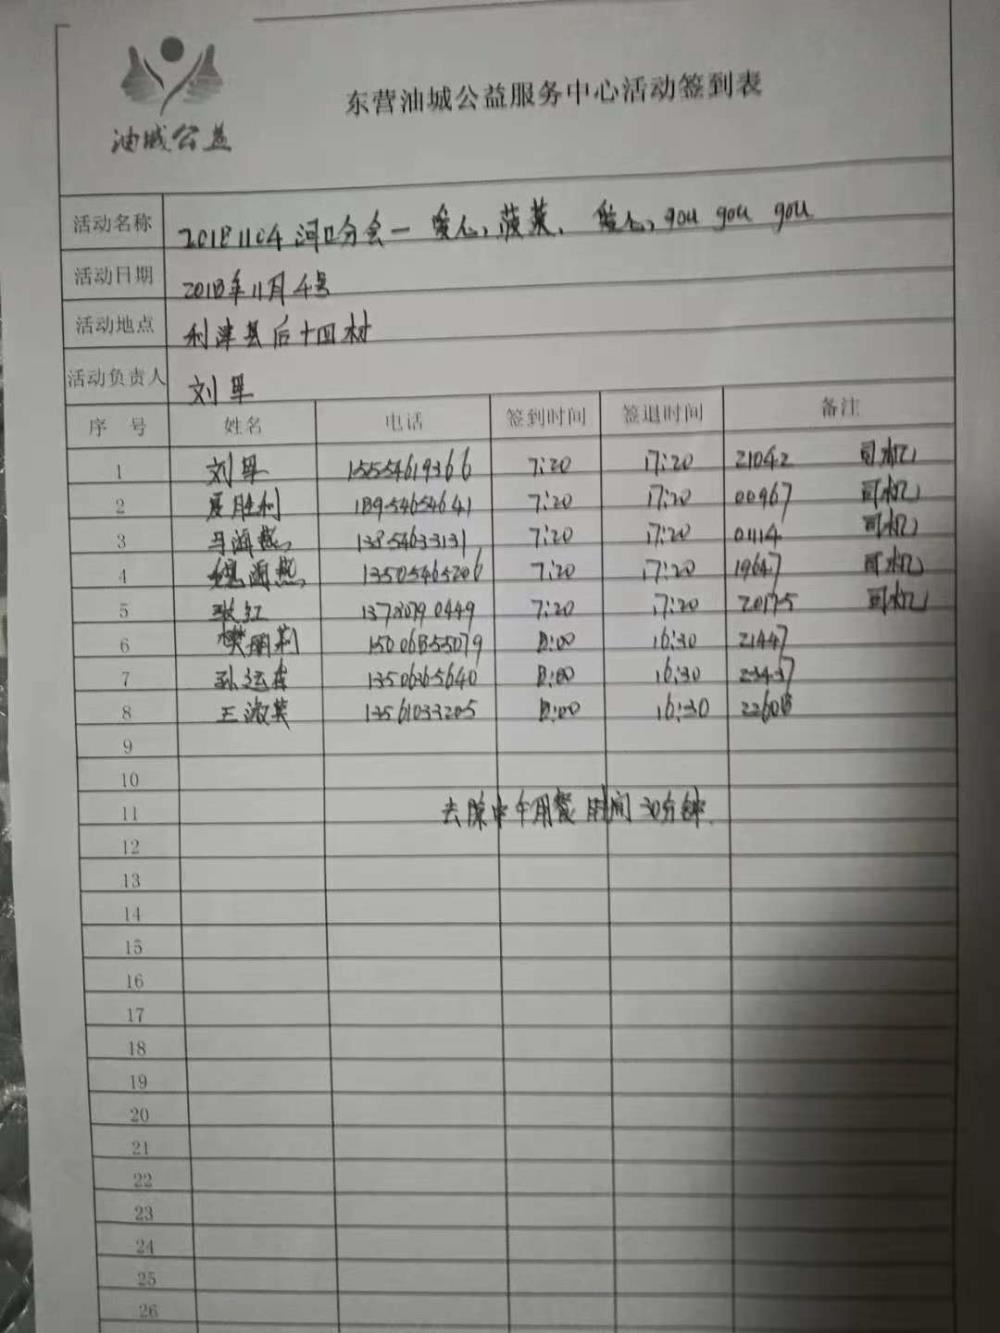 油城公益
东营油城公益服务中心活动签到表
活动名称 20181104河口分会一爱心,菠菜,爱心,gou gou gou
活动日期 2018年11月4号
活动地点 利津县后十四村
活动负责人 刘军
序 号 姓名 电话 签到时间 签退时间 备注
1 刘军 15554619366 7:20 17:20 21042 司机
2 夏胜利 18954654641 7:20 17:20 00967 司机
3 马海燕 13854633131 7:20 17:20 01114 司机
4 魏海燕 13505465206 7:20 17:20 19647 司机
5 张红 13780790449 7:20 17:20 20175 司机
6 樊丽莉 15006855079 8:00 16:30 21447
7 孙运 13506365640 8:00 16:30 23437
8 王淑英 13561033205 8:00 16:30 22608
9
10
11 去除中午用餐时间30分钟.
12
13
14
15
16
17
18
19
20
21
22
23
24
25
26